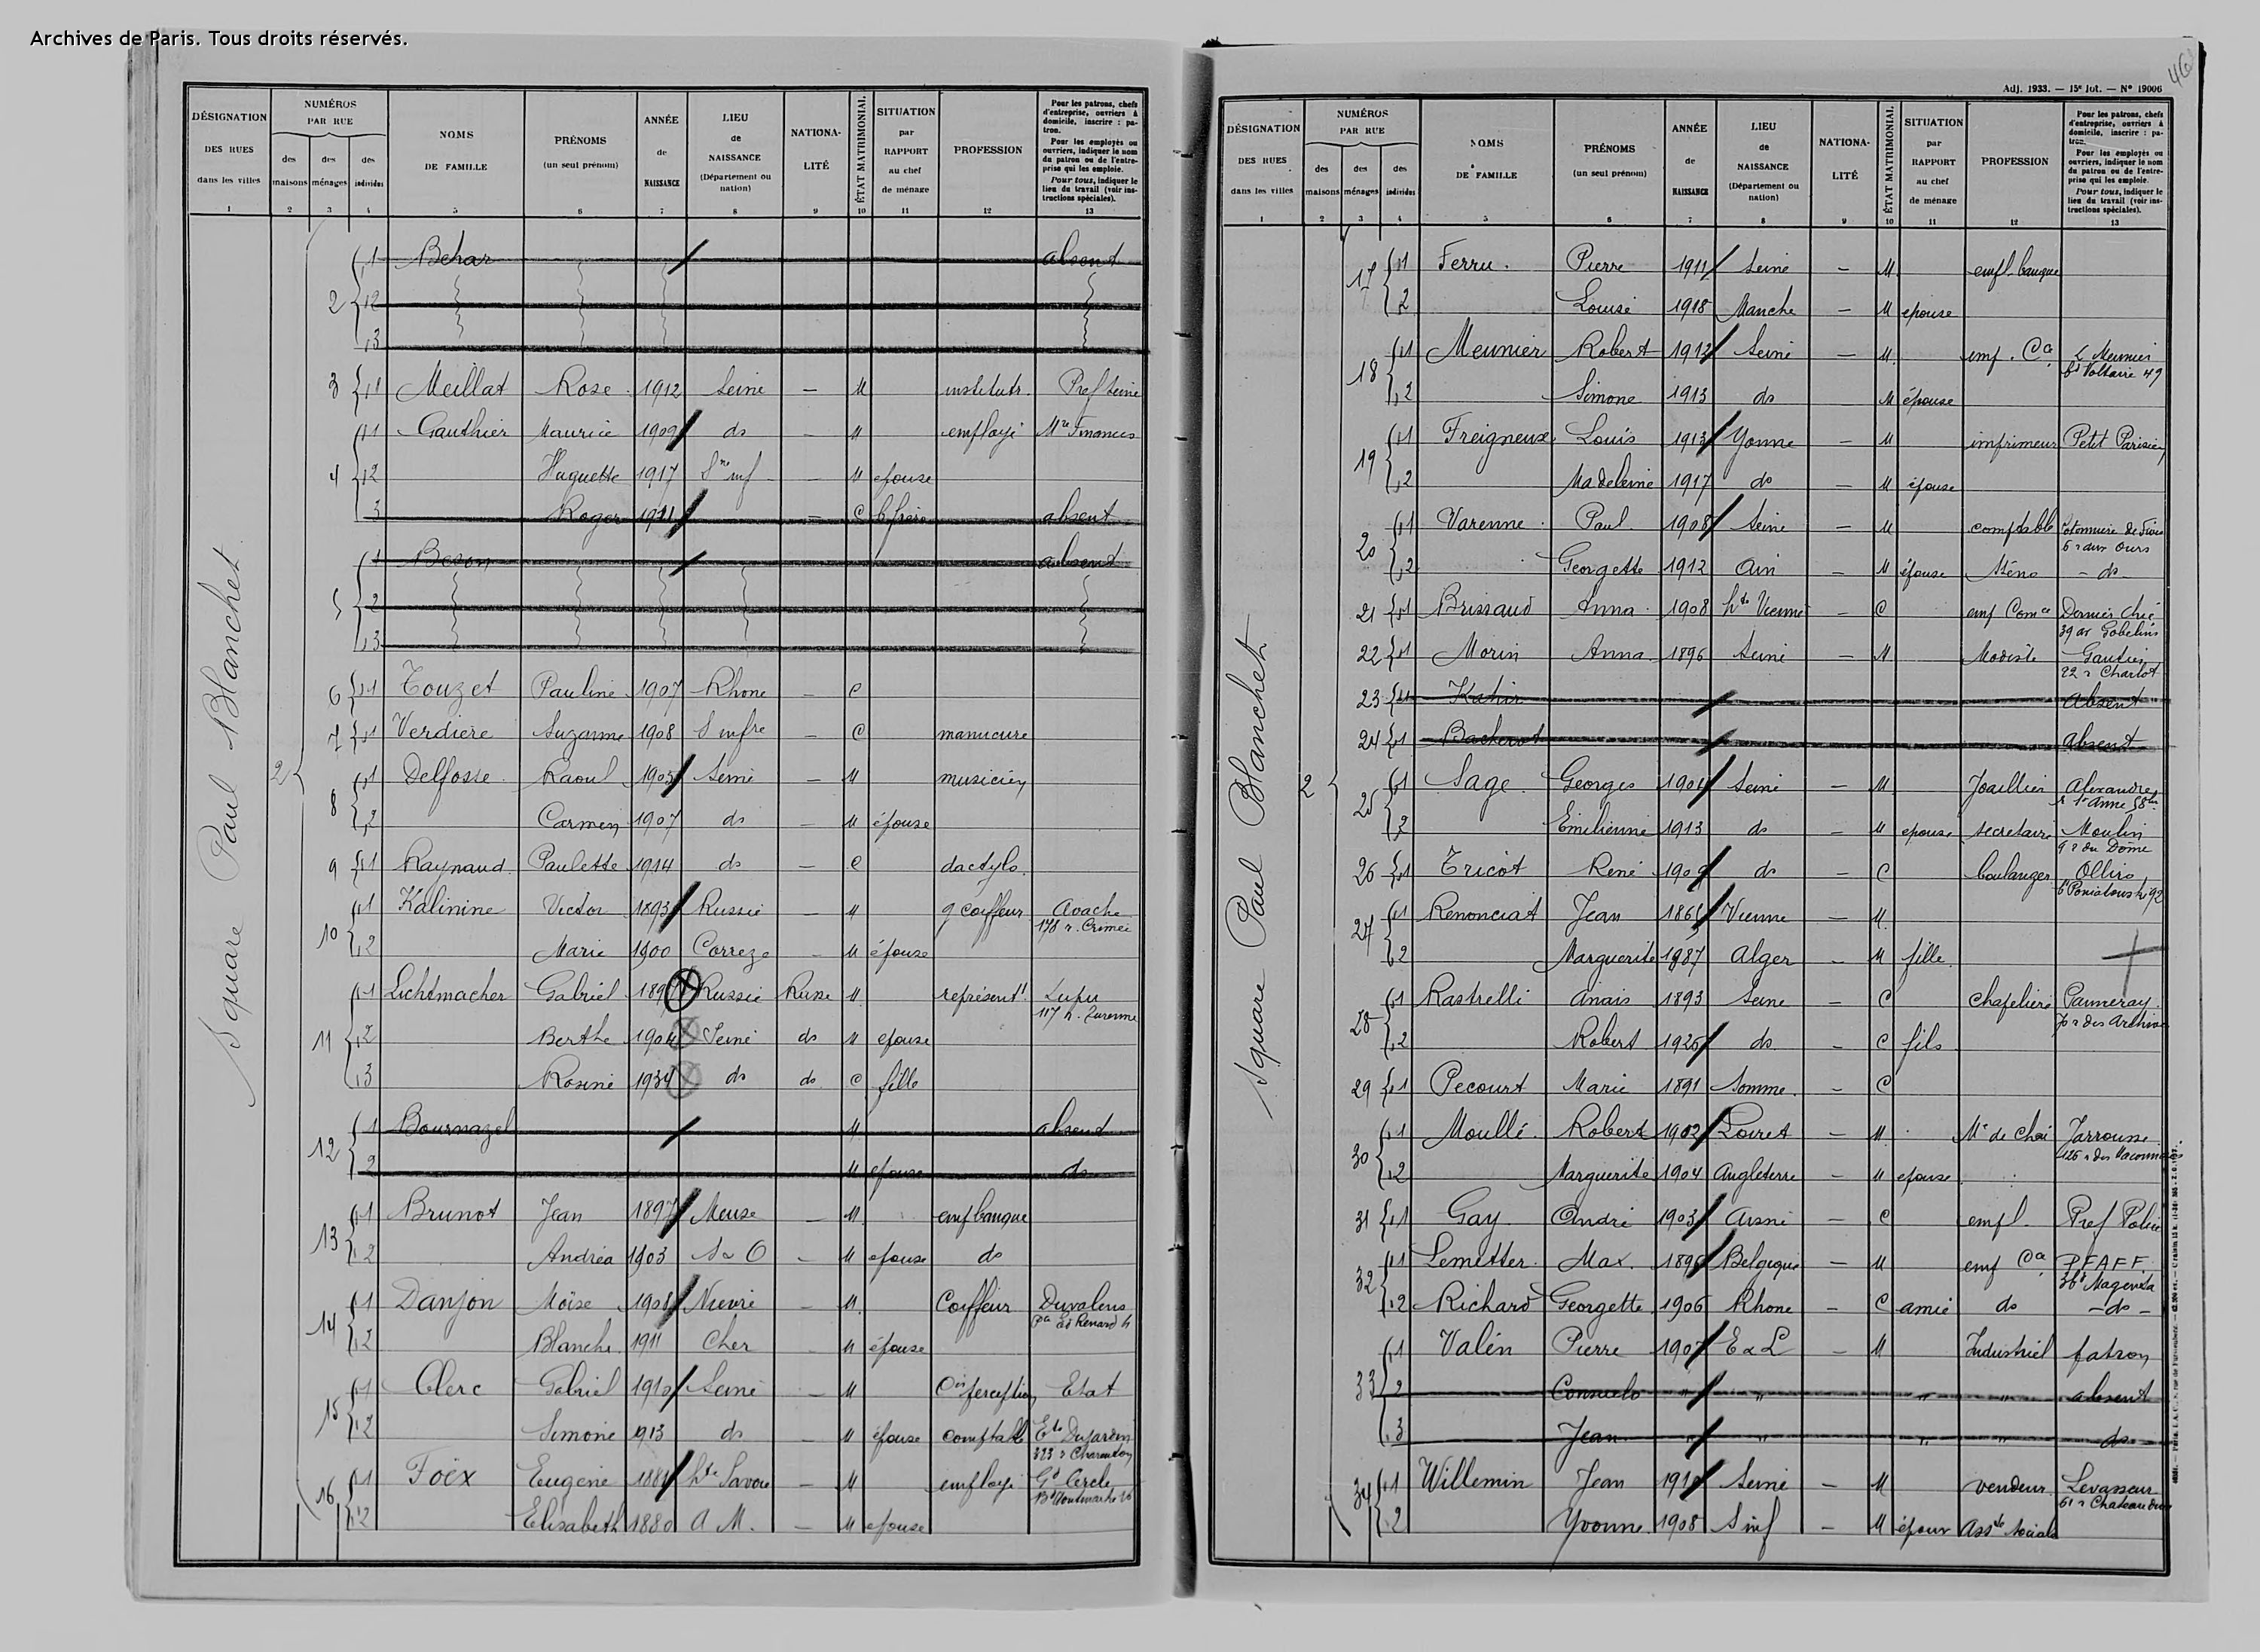 Archives de Paris. Tous droits réservés.
DÉSIGNATION DES RUES dans les villes
NUMÉROS PAR RUE
des maisons
des ménages
des individus
NOMS DE FAMILLE
PRÉNOMS (un seul prénom)
ANNÉE de NAISSANCE
LIEU de NAISSANCE (Département ou nation)
NATIONA- LITÉ
ÉTAT MATRIMONIAL.
SITUATION par RAPPORT au chef de ménage
PROFESSION
Pour les patrons, chefs d'entreprise, ouvriers à domicile, inscrire : pa- tron.
Pour les employés ou ouvriers, indiquer le nom du patron ou de l'entre- prise qui les emploie.
Pour tous, indiquer le lieu du travail (voir ins- tructions spéciales).
1 2 3 4 5 6 7 8 9 10 11 12 13
Square Paul Blanchet
2
2 1 Behar absent
2
3
3 1 Meillat Rose 1912 Seine — M institutr. Pref Seine
4 1 Gauthier Maurice 1909 do — M employé Mre Finances
2 Huguette 1917 Sne inf — M epouse
3 Roger 1911 — C b frère absent
5 1 absent
2
3
6 1 Touzet Pauline 1907 Rhone — C
7 1 Verdière Suzanne 1908 S infre — C manucure
8 1 Delfosse Raoul 1905 Seine — M musicien
2 Carmen 1907 do — M épouse
9 1 Raynaud Paulette 1914 do — C dactylo.
10 1 Kalinine Victor 1893 Russie — M g coiffeur Avache
178 r. Crimée
2 Marie 1900 Correze — M épouse
11 1 Lichtmacher Gabriel Russie Russe M représentt Lupu
117 r. Turenne
2 Berthe 1904 Seine do M epouse
3 Rosine 1934 do do C fille
12 1 Bournazel M absent
2 M epouse do
13 1 Brunot Jean 1897 Meuse — M emp banque
2 Andréa 1903 S & O — M epouse do
14 1 Danjon Moïse 1908 Nievre — M Coiffeur Duvalens
Renard 4
2 Blanche 1911 Cher M épouse
15 1 Clerc Gabriel 1910 Seine — M perception Etat
2 Simone 1913 do — M épouse comptable Ets Dujardin
323 r Charenton
16 1 Foëx Eugène 1881 Hte Savoie — M employé Gd Cercle
Bd Montmartre 16
2 Elisabeth 1880 A M. — M epouse
46
Adj. 1933. — 15e lot. — No 19006
DÉSIGNATION DES RUES dans les villes
NUMÉROS PAR RUE
des maisons
des ménages
des individus
NOMS DE FAMILLE
PRÉNOMS (un seul prénom)
ANNÉE de NAISSANCE
LIEU de NAISSANCE (Département ou nation)
NATIONA- LITÉ
ÉTAT MATRIMONIAL.
SITUATION par RAPPORT au chef de ménage
PROFESSION
Pour les patrons, chefs d'entreprise, ouvriers à domicile, inscrire : pa- tron.
Pour les employés ou ouvriers, indiquer le nom du patron ou de l'entre- prise qui les emploie.
Pour tous, indiquer le lieu du travail (voir ins- tructions spéciales).
1 2 3 4 5 6 7 8 9 10 11 12 13
Square Paul Blanchet
2
17 1 Ferru Pierre 1911 Seine — M empl. banque
2 Louise 1918 Manche — M epouse
18 1 Meunier Robert 1912 Seine — M emp. Ce L Meunier
bd Voltaire 49
2 Simone 1913 do M épouse
19 1 Freigneux Louis 1913 Yonne — M imprimeur Petit Parisien
2 Madeleine 1917 do — M épouse
20 1 Varenne Paul 1908 Seine — M comptable
6 r aux Ours
2 Georgette 1912 Ain — M épouse Sténo - do -
21 1 Brissaud Anna 1908 Hte Vienne — C emp Comce Dernier Chic
39 av Gobelins
22 1 Morin Anna 1896 Seine — M Modiste Gautier
22 r Charlot
23 1 absent
24 1 Bacherot absent
25 1 Sage Georges 1904 Seine — M Joaillier Alexandre
r Ste Anne 58bis
2 Emilienne 1913 do — M epouse secretaire Moulin
9 r du Dôme
26 1 Tricot René do — C boulanger
bd Poniatowski 92
27 1 Renonciat Jean Vienne — M
2 Marguerite 1887 Alger — M fille
28 1 Rastrelli Anais 1893 Seine — C Chapelière Panneray
70 r des Archives
2 Robert 1926 do — C fils
29 1 Pecourt Marie 1891 Somme — C
30 1 Moullé Robert 1902 Loiret — M Me de Chai Jarrousse
2 Marguerite 1904 Angleterre — M epouse
31 1 Gay André 1903 Aisne — C empl. Pref Police
32 1 Lemetter Max 1896 Belgique — M emp Ce PFAFF
bd Magenta
2 Richard Georgette 1906 Rhone — C amie do - do -
33 1 Valén Pierre 1907 E & L — M Industriel patron
2 Consuelo " " " " absent
3 Jean " " " " do
34 1 Willemin Jean 1910 Seine — M vendeur Levasseur
61 r Chateau d'eau
2 Yvonne 1908 S inf — M épouse Asste Sociale